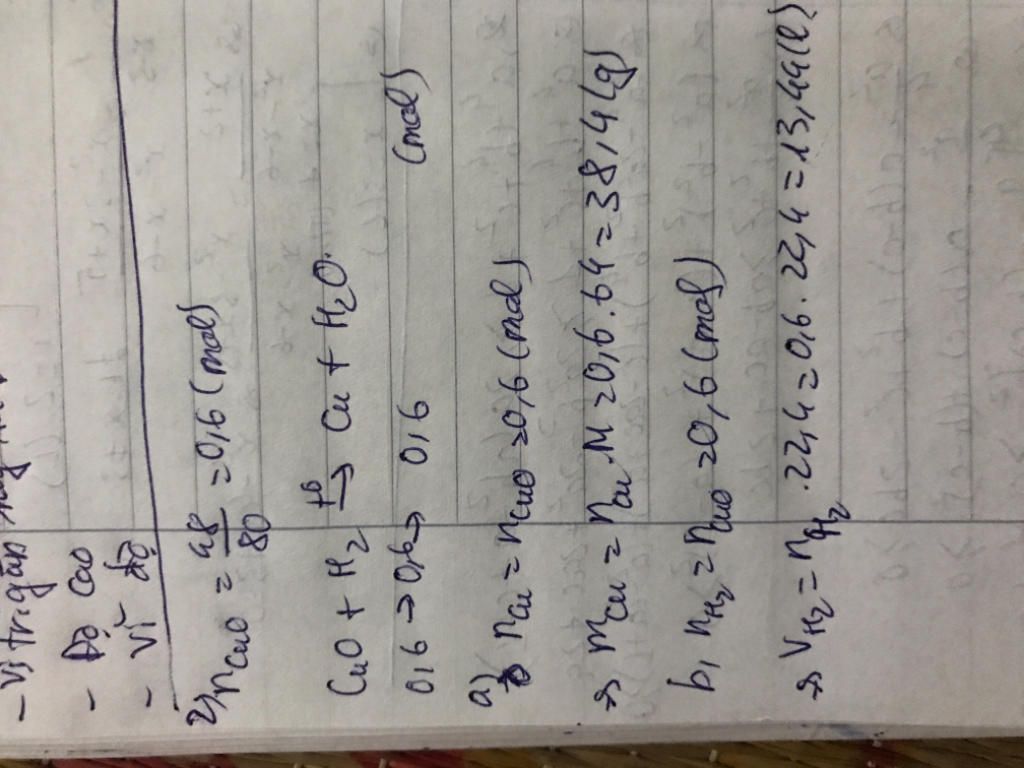 - Vị trí gần
- Độ cao
- Vĩ độ
2, nCuO = 48/80 = 0,6 (mol)
CuO + H2 t° → Cu + H2O
0,6 → 0,6 → 0,6 (mol)
a) nCu = nCuO = 0,6 (mol)
=> mCu = nCu . M = 0,6 . 64 = 38,4 (g)
b, nH2 = nCuO = 0,6 (mol)
=> VH2 = nH2 . 22,4 = 0,6 . 22,4 = 13,44 (l)